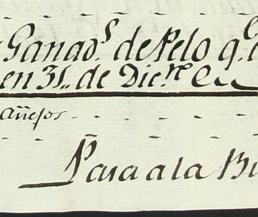 Ganad.s de Pelo q.e
en 31,, de Dic.re
añejos
Para a la